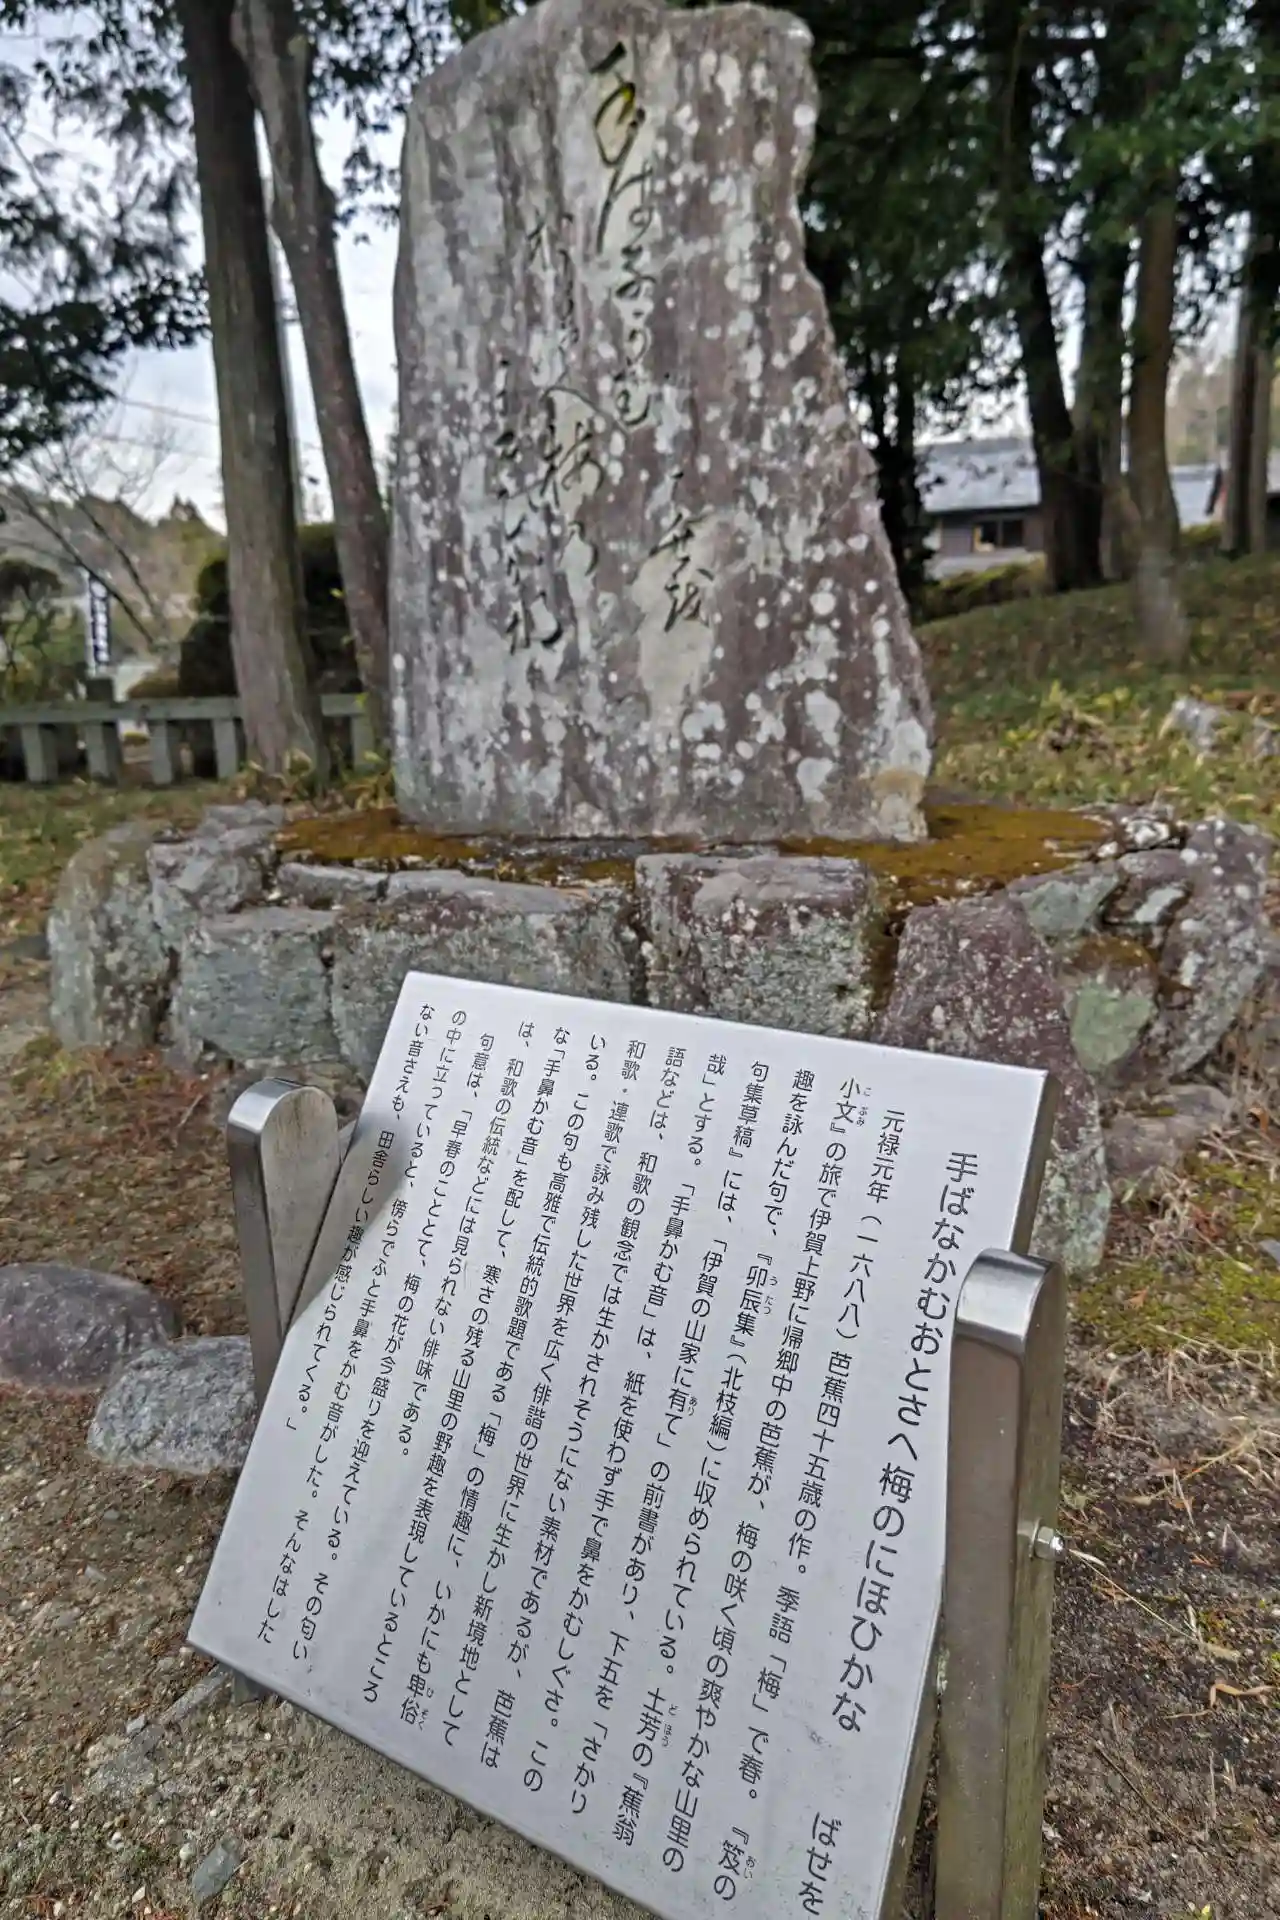 手ばなかむおとさへ梅のにほひかな
ばせを
元禄元年(一六八八)芭蕉四十五歳の作。季語「梅」で春。『笈の
小文』の旅で伊賀上野に帰郷中の芭蕉が、梅の咲く頃の爽やかな山里の
趣を詠んだ句で、『卯辰集』(北枝編)に収められている。土芳の『蕉翁
句集草稿』には、「伊賀の山家に有て」の前書があり、下五を「さかり
哉」とする。「手鼻かむ音」は、紙を使わず手で鼻をかむしぐさ。この
語などは、和歌の観念では生かされそうにない素材であるが、芭蕉は
和歌・連歌で詠み残した世界を広く俳諧の世界に生かし新境地として
いる。この句も高雅で伝統的歌題である「梅」の情趣に、いかにも卑俗
な「手鼻かむ音」を配して、寒さの残る山里の野趣を表現しているところ
は、和歌の伝統などには見られない俳味である。
句意は、「早春のこととて、梅の花が今盛りを迎えている。その匂い
の中に立っていると、傍らでふと手鼻をかむ音がした。そんなはした
ない音さえも、田舎らしい趣が感じられてくる。」